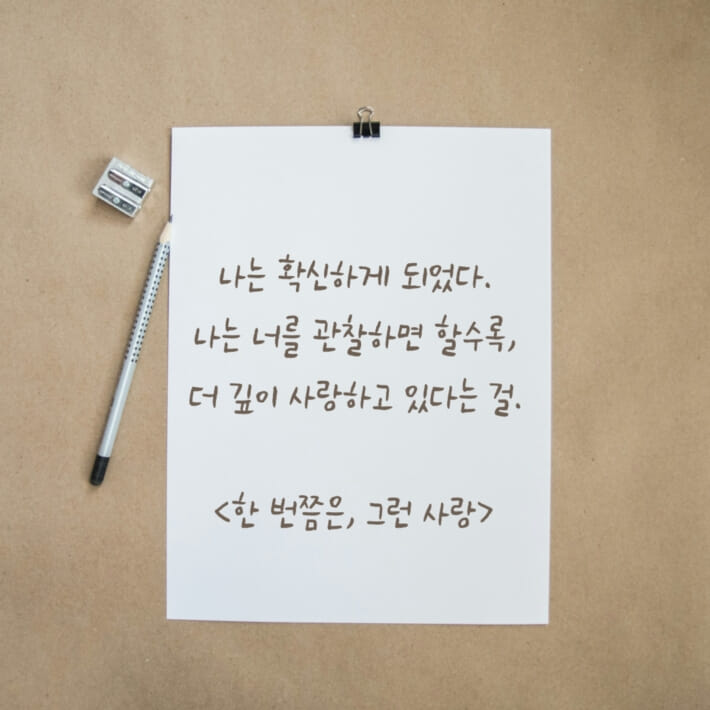 나는 확신하게 되었다.
나는 너를 관찰하면 할수록,
더 깊이 사랑하고 있다는 걸.
<한 번쯤은, 그런 사랑>